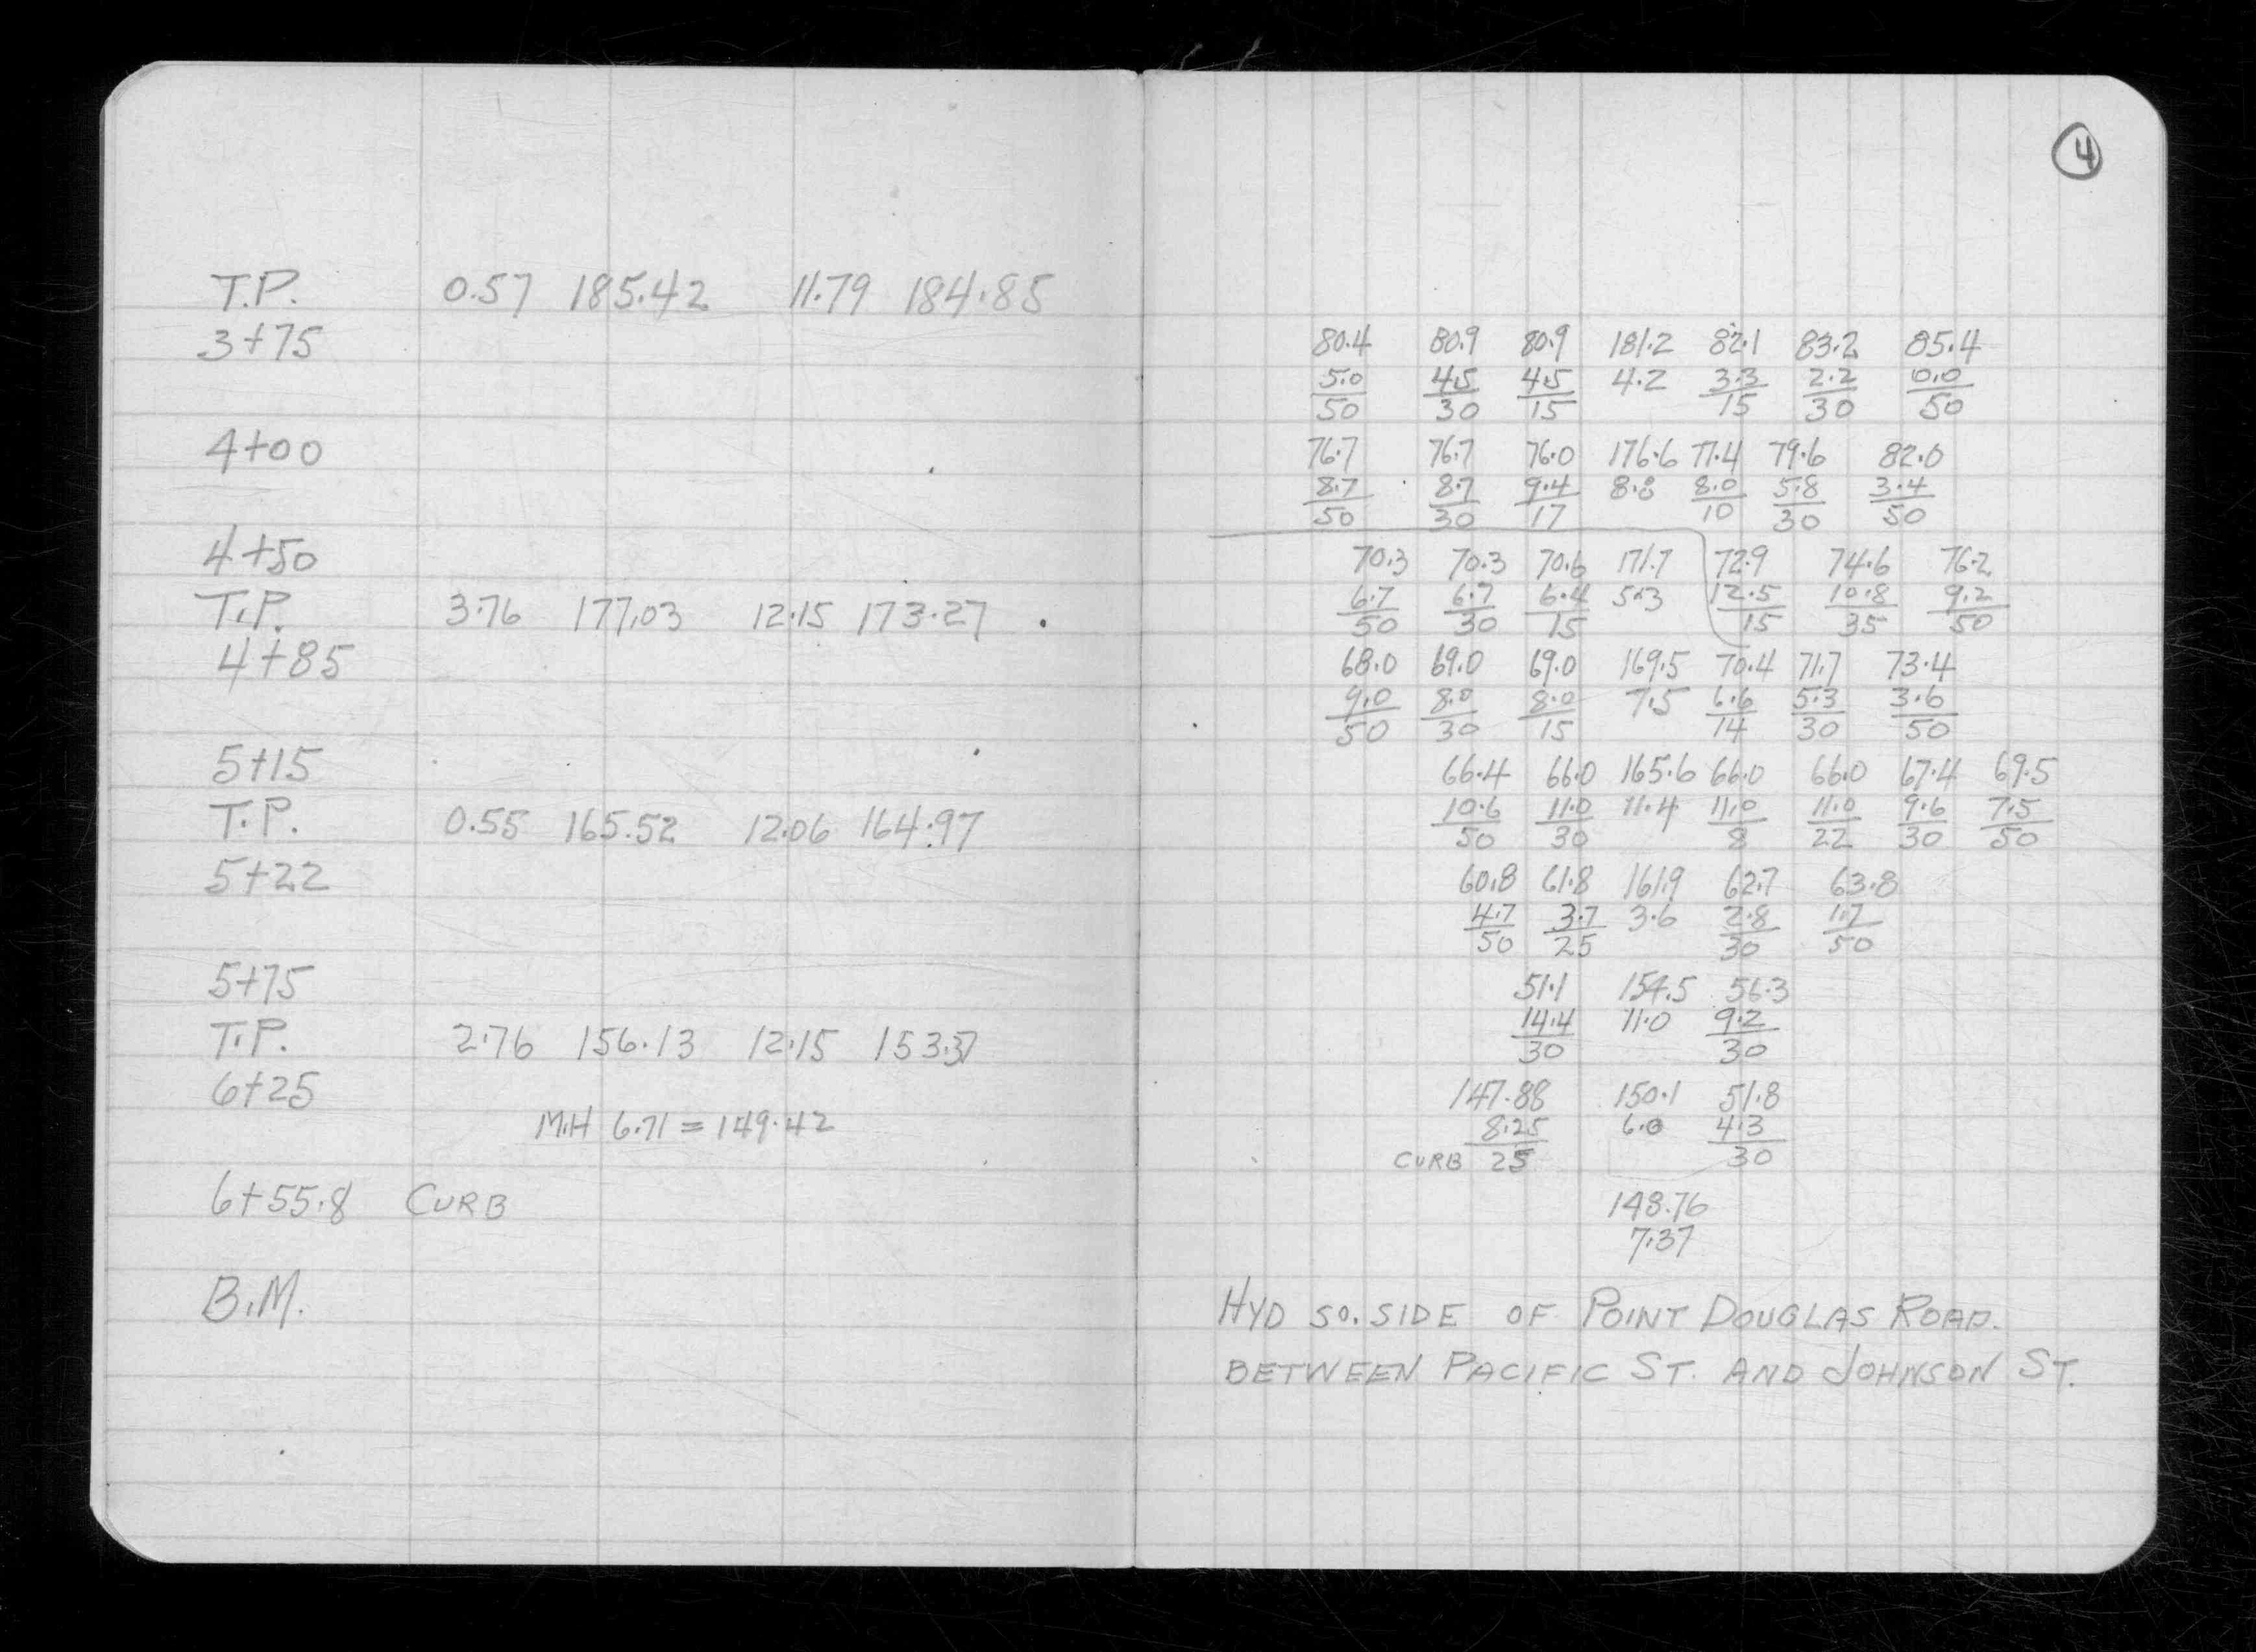 4
T.P. 0.57 185.42 11.79 184.85
3+75 80.4 80.9 80.9 181.2 82.1 83.2 85.4
5.0 4.5 4.5 4.2 3.3 2.2 0.0
50 30 15 15 30 50
4+00 76.7 76.7 76.0 176.6 77.4 79.6 82.0
8.7 8.7 9.4 8.8 8.0 5.8 3.4
50 30 17 10 30 50
4+50 70.3 70.3 70.6 171.7 72.9 74.6 76.2
T.P. 3.76 177.03 12.15 173.27 6.7 6.7 6.4 5.3 12.5 10.8 9.2
50 30 15 15 35 50
4+85 68.0 69.0 69.0 169.5 70.4 71.7 73.4
9.0 8.0 8.0 7.5 6.6 5.3 3.6
50 30 15 14 30 50
5+15 66.4 66.0 165.6 66.0 66.0 67.4 69.5
T.P. 0.55 165.52 12.06 164.97 10.6 11.0 11.4 11.0 11.0 9.6 7.5
50 30 8 22 30 50
5+22 60.8 61.8 161.9 62.7 63.8
4.7 3.7 3.6 2.8 1.7
50 25 30 50
5+75 51.1 154.5 56.3
T.P. 2.76 156.13 12.15 153.37 14.4 11.0 9.2
30 30
6+25 147.88 150.1 51.8
M.H 6.71 = 149.42 8.25 6.0 4.3
CURB 25 30
6+55.8 CURB 148.76
7.37
B.M. HYD SO. SIDE OF POINT DOUGLAS ROAD.
BETWEEN PACIFIC ST. AND JOHNSON ST.